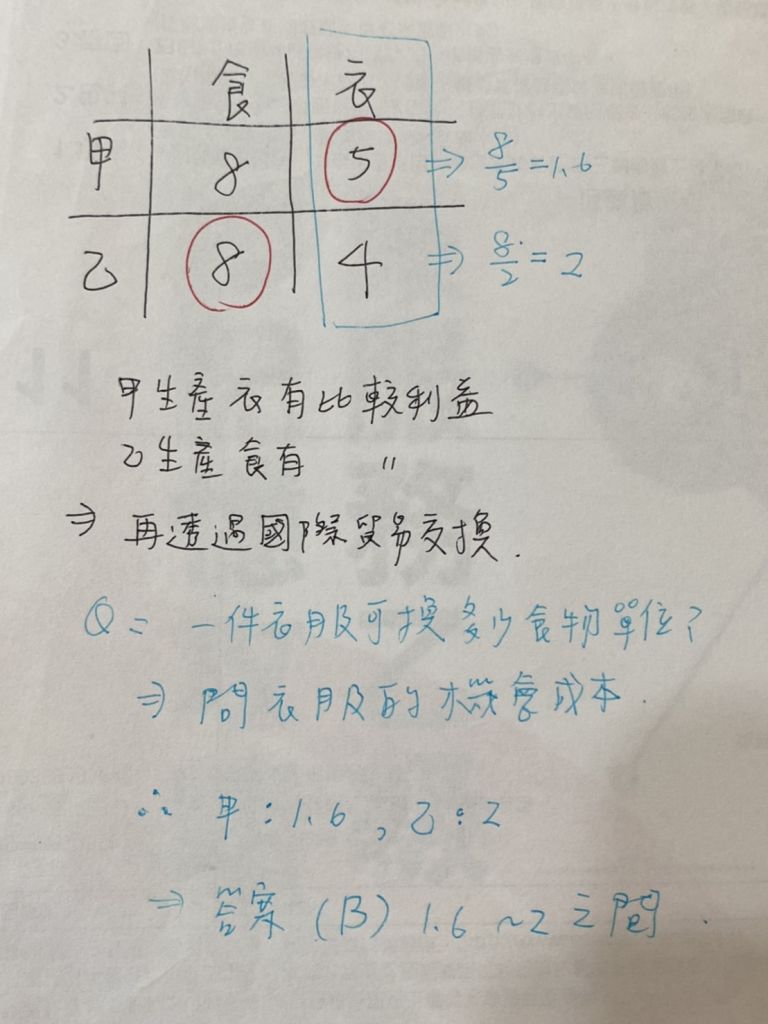 食 衣
甲 8 5 ⇒ 8/5 = 1.6
乙 8 4 ⇒ 8/2 = 2
甲生產衣有比較利益
乙生產食有 〃
⇒ 再透過國際貿易交換.
Q = 一件衣服可換多少食物單位?
⇒ 問衣服的機會成本.
∴ 甲:1.6, 乙:2
⇒ 答案 (B) 1.6 ~2 之間.